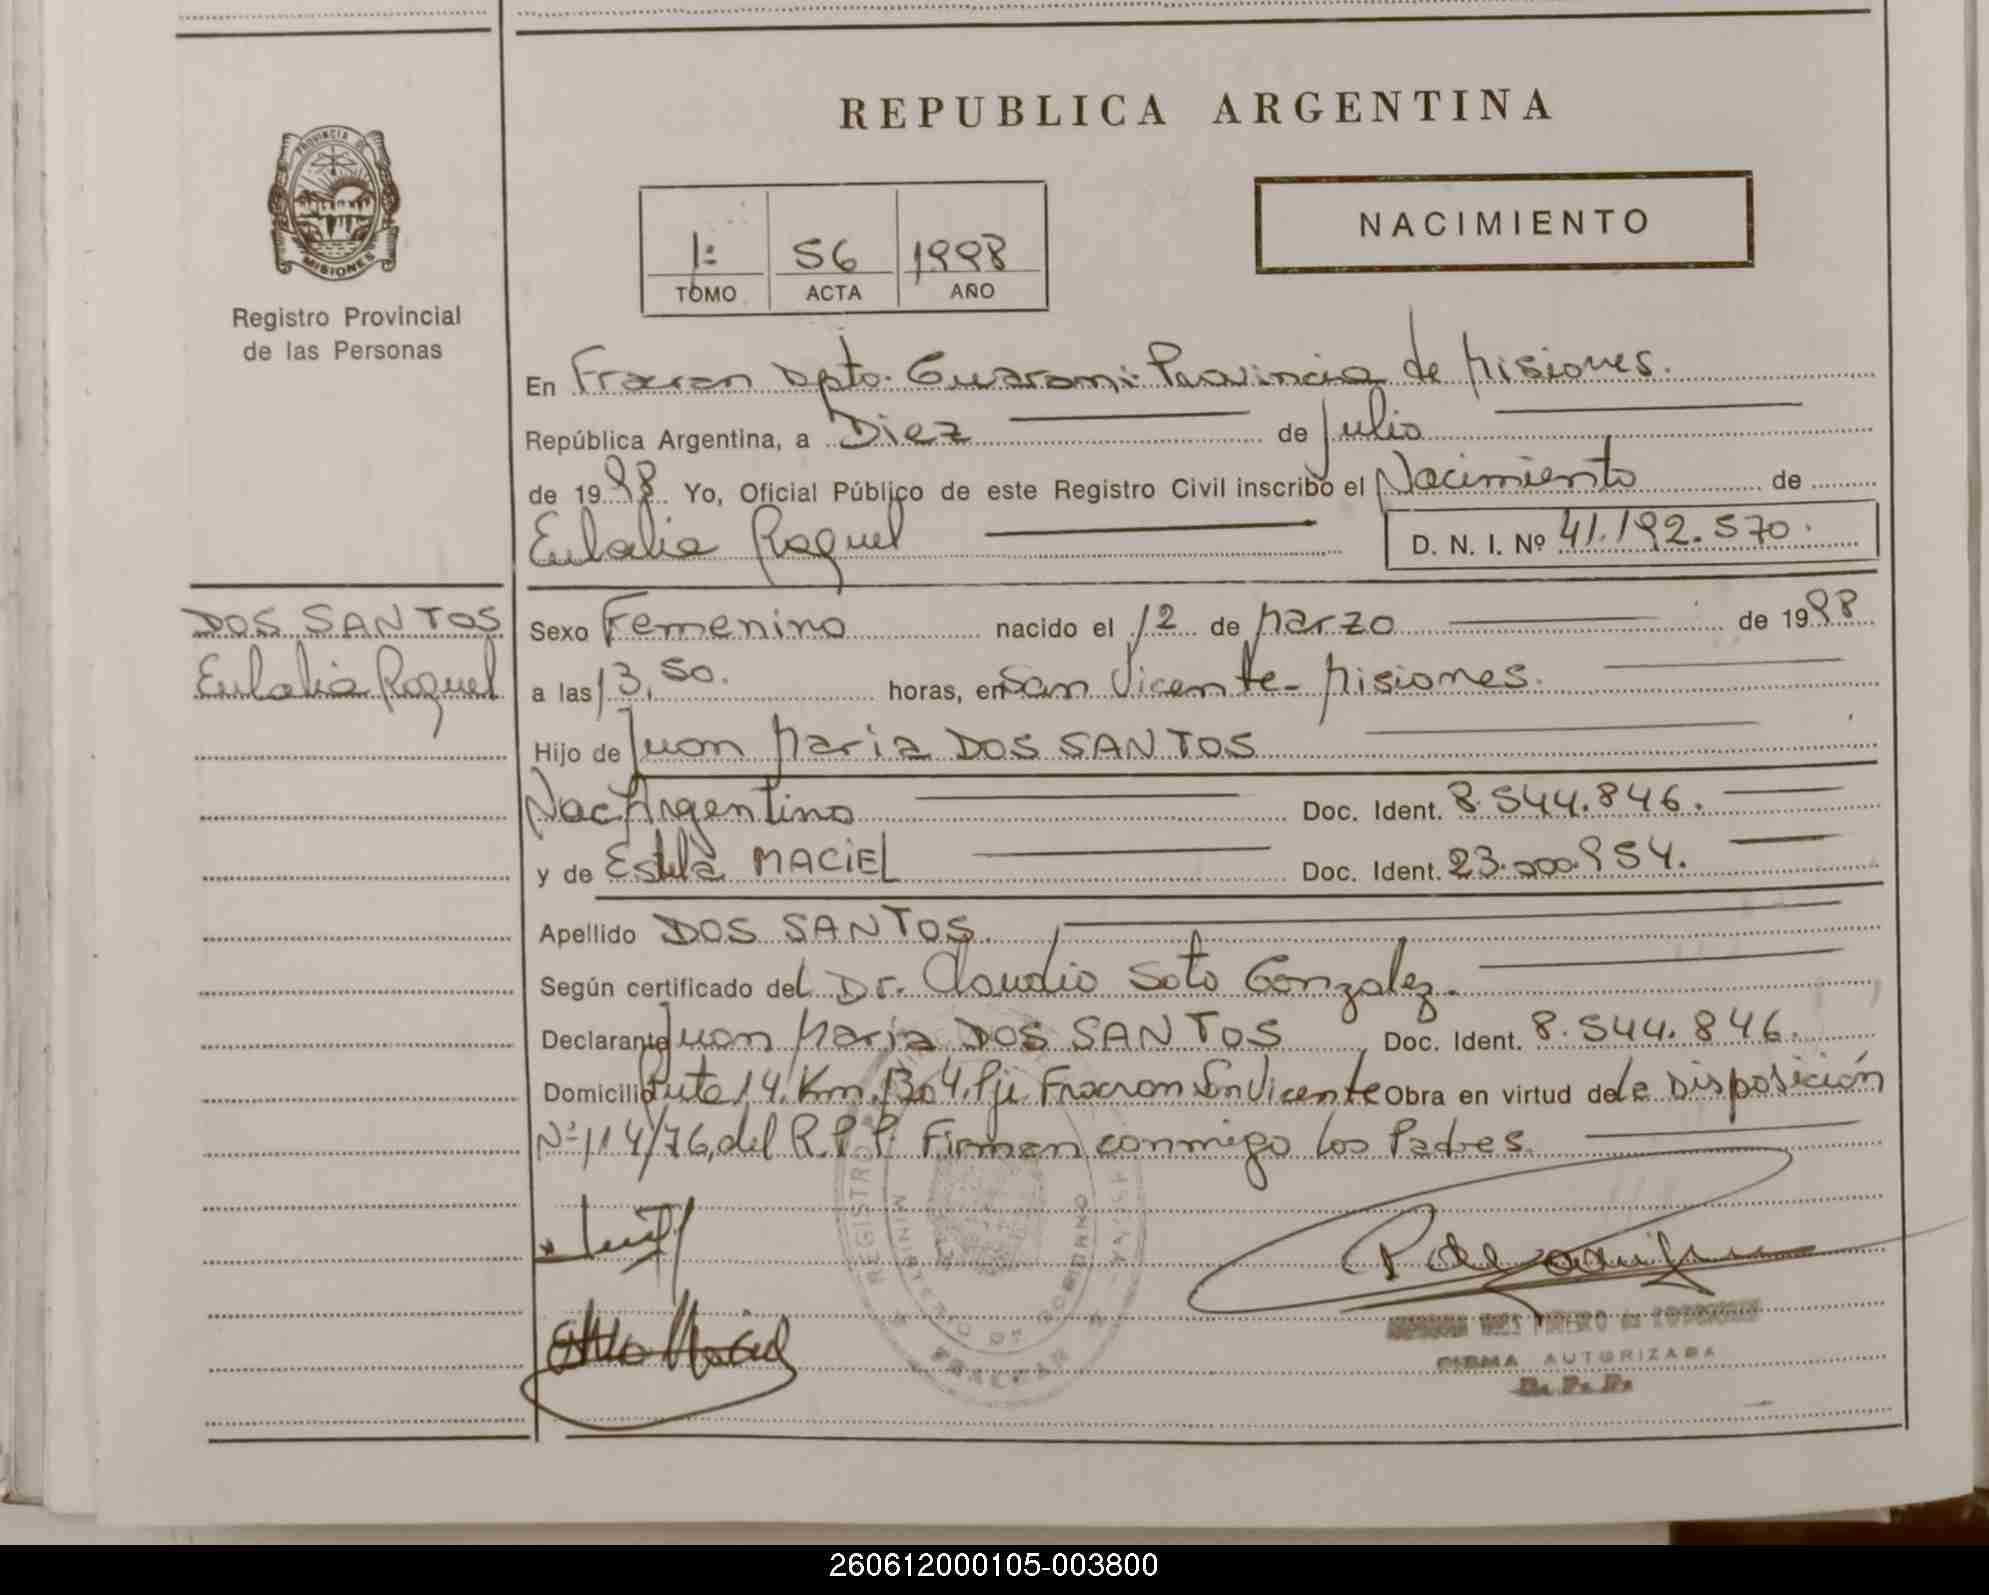 REPUBLICA ARGENTINA
PROVINCIA DE
MISIONES
Registro Provincial
de las Personas
NACIMIENTO
1º 56 1998
TOMO ACTA AÑO
En Fracran Dpto. Guarani Provincia de Misiones.
República Argentina, a Diez de Julio
de 1998 Yo, Oficial Público de este Registro Civil inscribo el Nacimiento de
Eulalia Raquel D. N. I. Nº 41.192.570.
DOS SANTOS
Eulalia Raquel
Sexo Femenino nacido el 12 de Marzo de 1998
a las 13,50. horas, en San Vicente - Misiones.
Hijo de Juan Maria DOS SANTOS
Nac Argentino Doc. Ident. 8.544.846.
y de Estela MACIEL Doc. Ident. 23.000.954.
Apellido DOS SANTOS
Según certificado del Dr. Claudio Soto Gonzalez.
Declarante Juan Maria DOS SANTOS Doc. Ident. 8.544.846.
Domicilio Ruta 14 Km. 1304 Pje. Fracran Sn Vicente Obra en virtud de la Disposición
Nº 114/76, del R.P.P. Firman conmigo los Padres.
REGISTRO
MINISTERIO DE GOBIERNO
FRACRAN
Estela Maciel
PIÑEIRO de
FIRMA AUTORIZADA
260612000105-003800